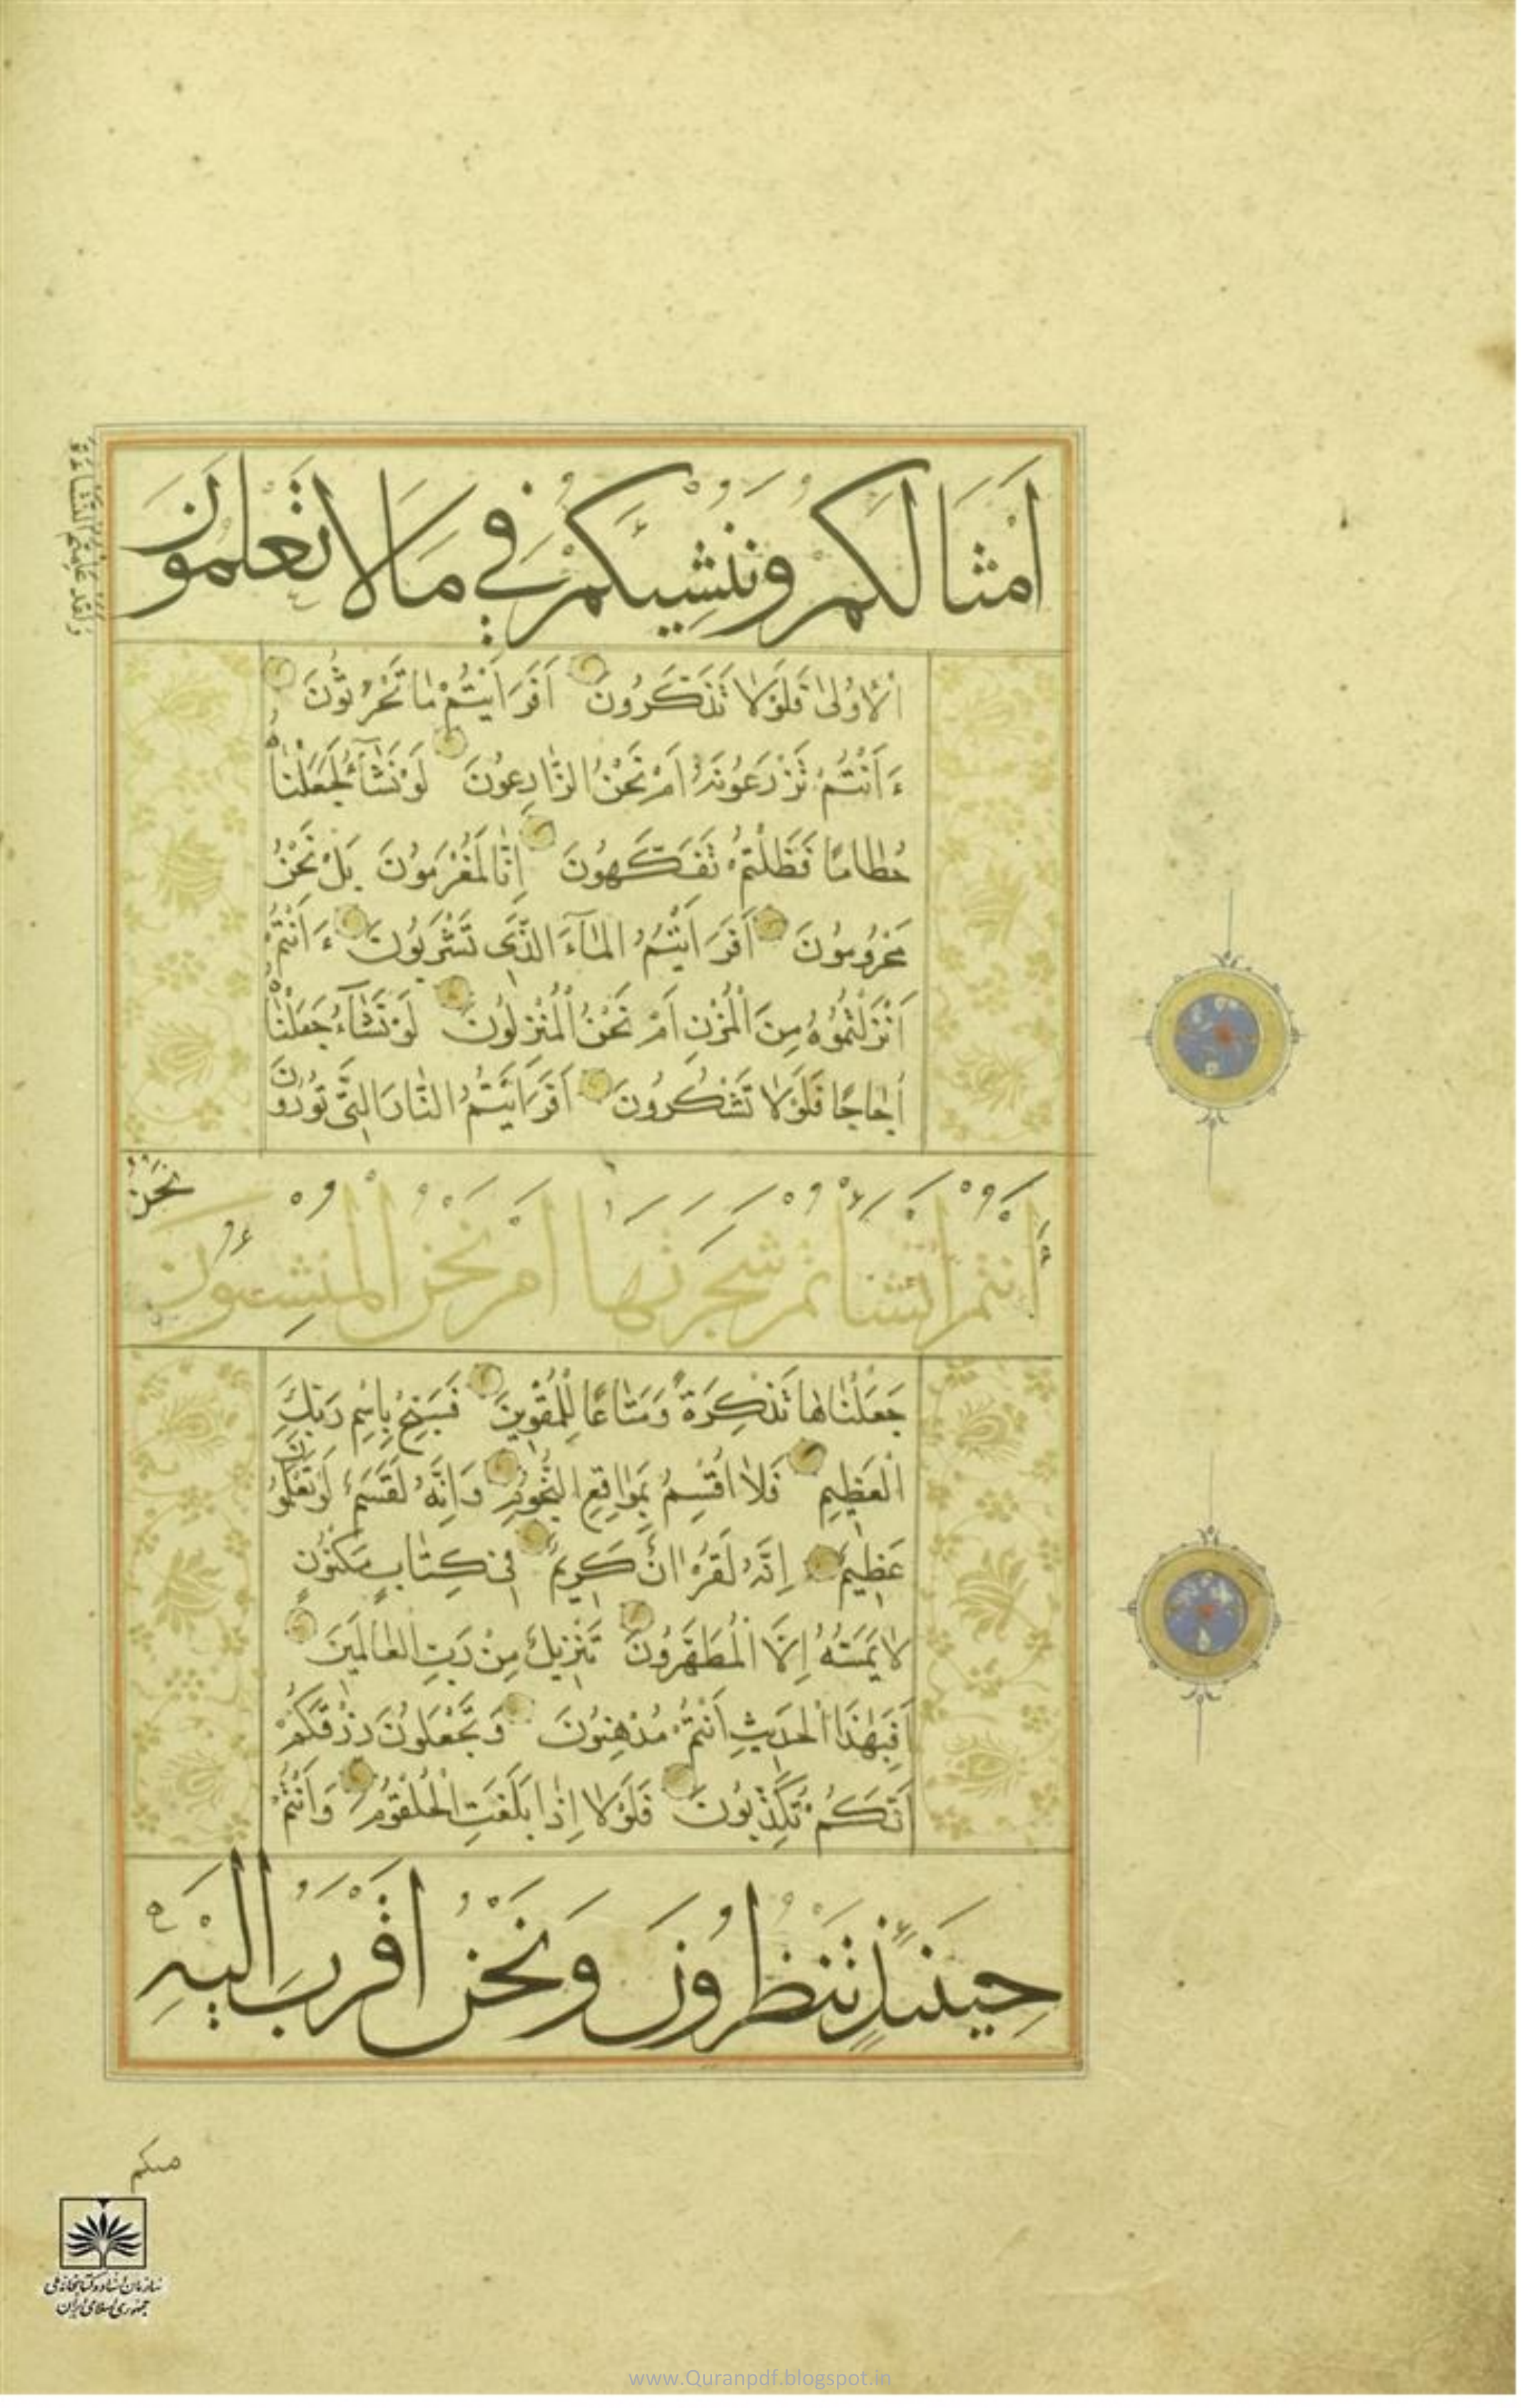 اَمْثَالَكُمْ وَنُنْشِئَكُمْ فِي مَا لَا تَعْلَمُونَ
وَلَقَدْ عَلِمْتُمُ النَّشْأَةَ
الْأُولٰى فَلَوْلَا تَذَكَّرُونَ اَفَرَاَيْتُمْ مَا تَحْرُثُونَ
ءَاَنْتُمْ تَزْرَعُونَهُ اَمْ نَحْنُ الزَّارِعُونَ لَوْ نَشَآءُ لَجَعَلْنَاهُ
حُطَامًا فَظَلْتُمْ تَفَكَّهُونَ اِنَّا لَمُغْرَمُونَ بَلْ نَحْنُ
مَحْرُومُونَ اَفَرَاَيْتُمُ الْمَآءَ الَّذِي تَشْرَبُونَ ءَاَنْتُمْ
اَنْزَلْتُمُوهُ مِنَ الْمُزْنِ اَمْ نَحْنُ الْمُنْزِلُونَ لَوْ نَشَآءُ جَعَلْنَاهُ
اُجَاجًا فَلَوْلَا تَشْكُرُونَ اَفَرَاَيْتُمُ النَّارَ الَّتِي تُورُونَ
ءَاَنْتُمْ اَنْشَأْتُمْ شَجَرَتَهَا اَمْ نَحْنُ الْمُنْشِئُونَ
نَحْنُ
جَعَلْنَاهَا تَذْكِرَةً وَمَتَاعًا لِلْمُقْوِينَ فَسَبِّحْ بِاسْمِ رَبِّكَ
الْعَظِيمِ فَلَا اُقْسِمُ بِمَوَاقِعِ النُّجُومِ وَاِنَّهُ لَقَسَمٌ لَوْ تَعْلَمُونَ
عَظِيمٌ اِنَّهُ لَقُرْاٰنٌ كَرِيمٌ فِي كِتَابٍ مَكْنُونٍ
لَا يَمَسُّهُ اِلَّا الْمُطَهَّرُونَ تَنْزِيلٌ مِنْ رَبِّ الْعَالَمِينَ
اَفَبِهٰذَا الْحَدِيثِ اَنْتُمْ مُدْهِنُونَ وَتَجْعَلُونَ رِزْقَكُمْ
اَنَّكُمْ تُكَذِّبُونَ فَلَوْلَا اِذَا بَلَغَتِ الْحُلْقُومَ وَاَنْتُمْ
حِينَئِذٍ تَنْظُرُونَ وَنَحْنُ اَقْرَبُ اِلَيْهِ
منكم
سازمان اسناد و کتابخانه ملی
جمهوری اسلامی ایران
www.Quranpdf.blogspot.in